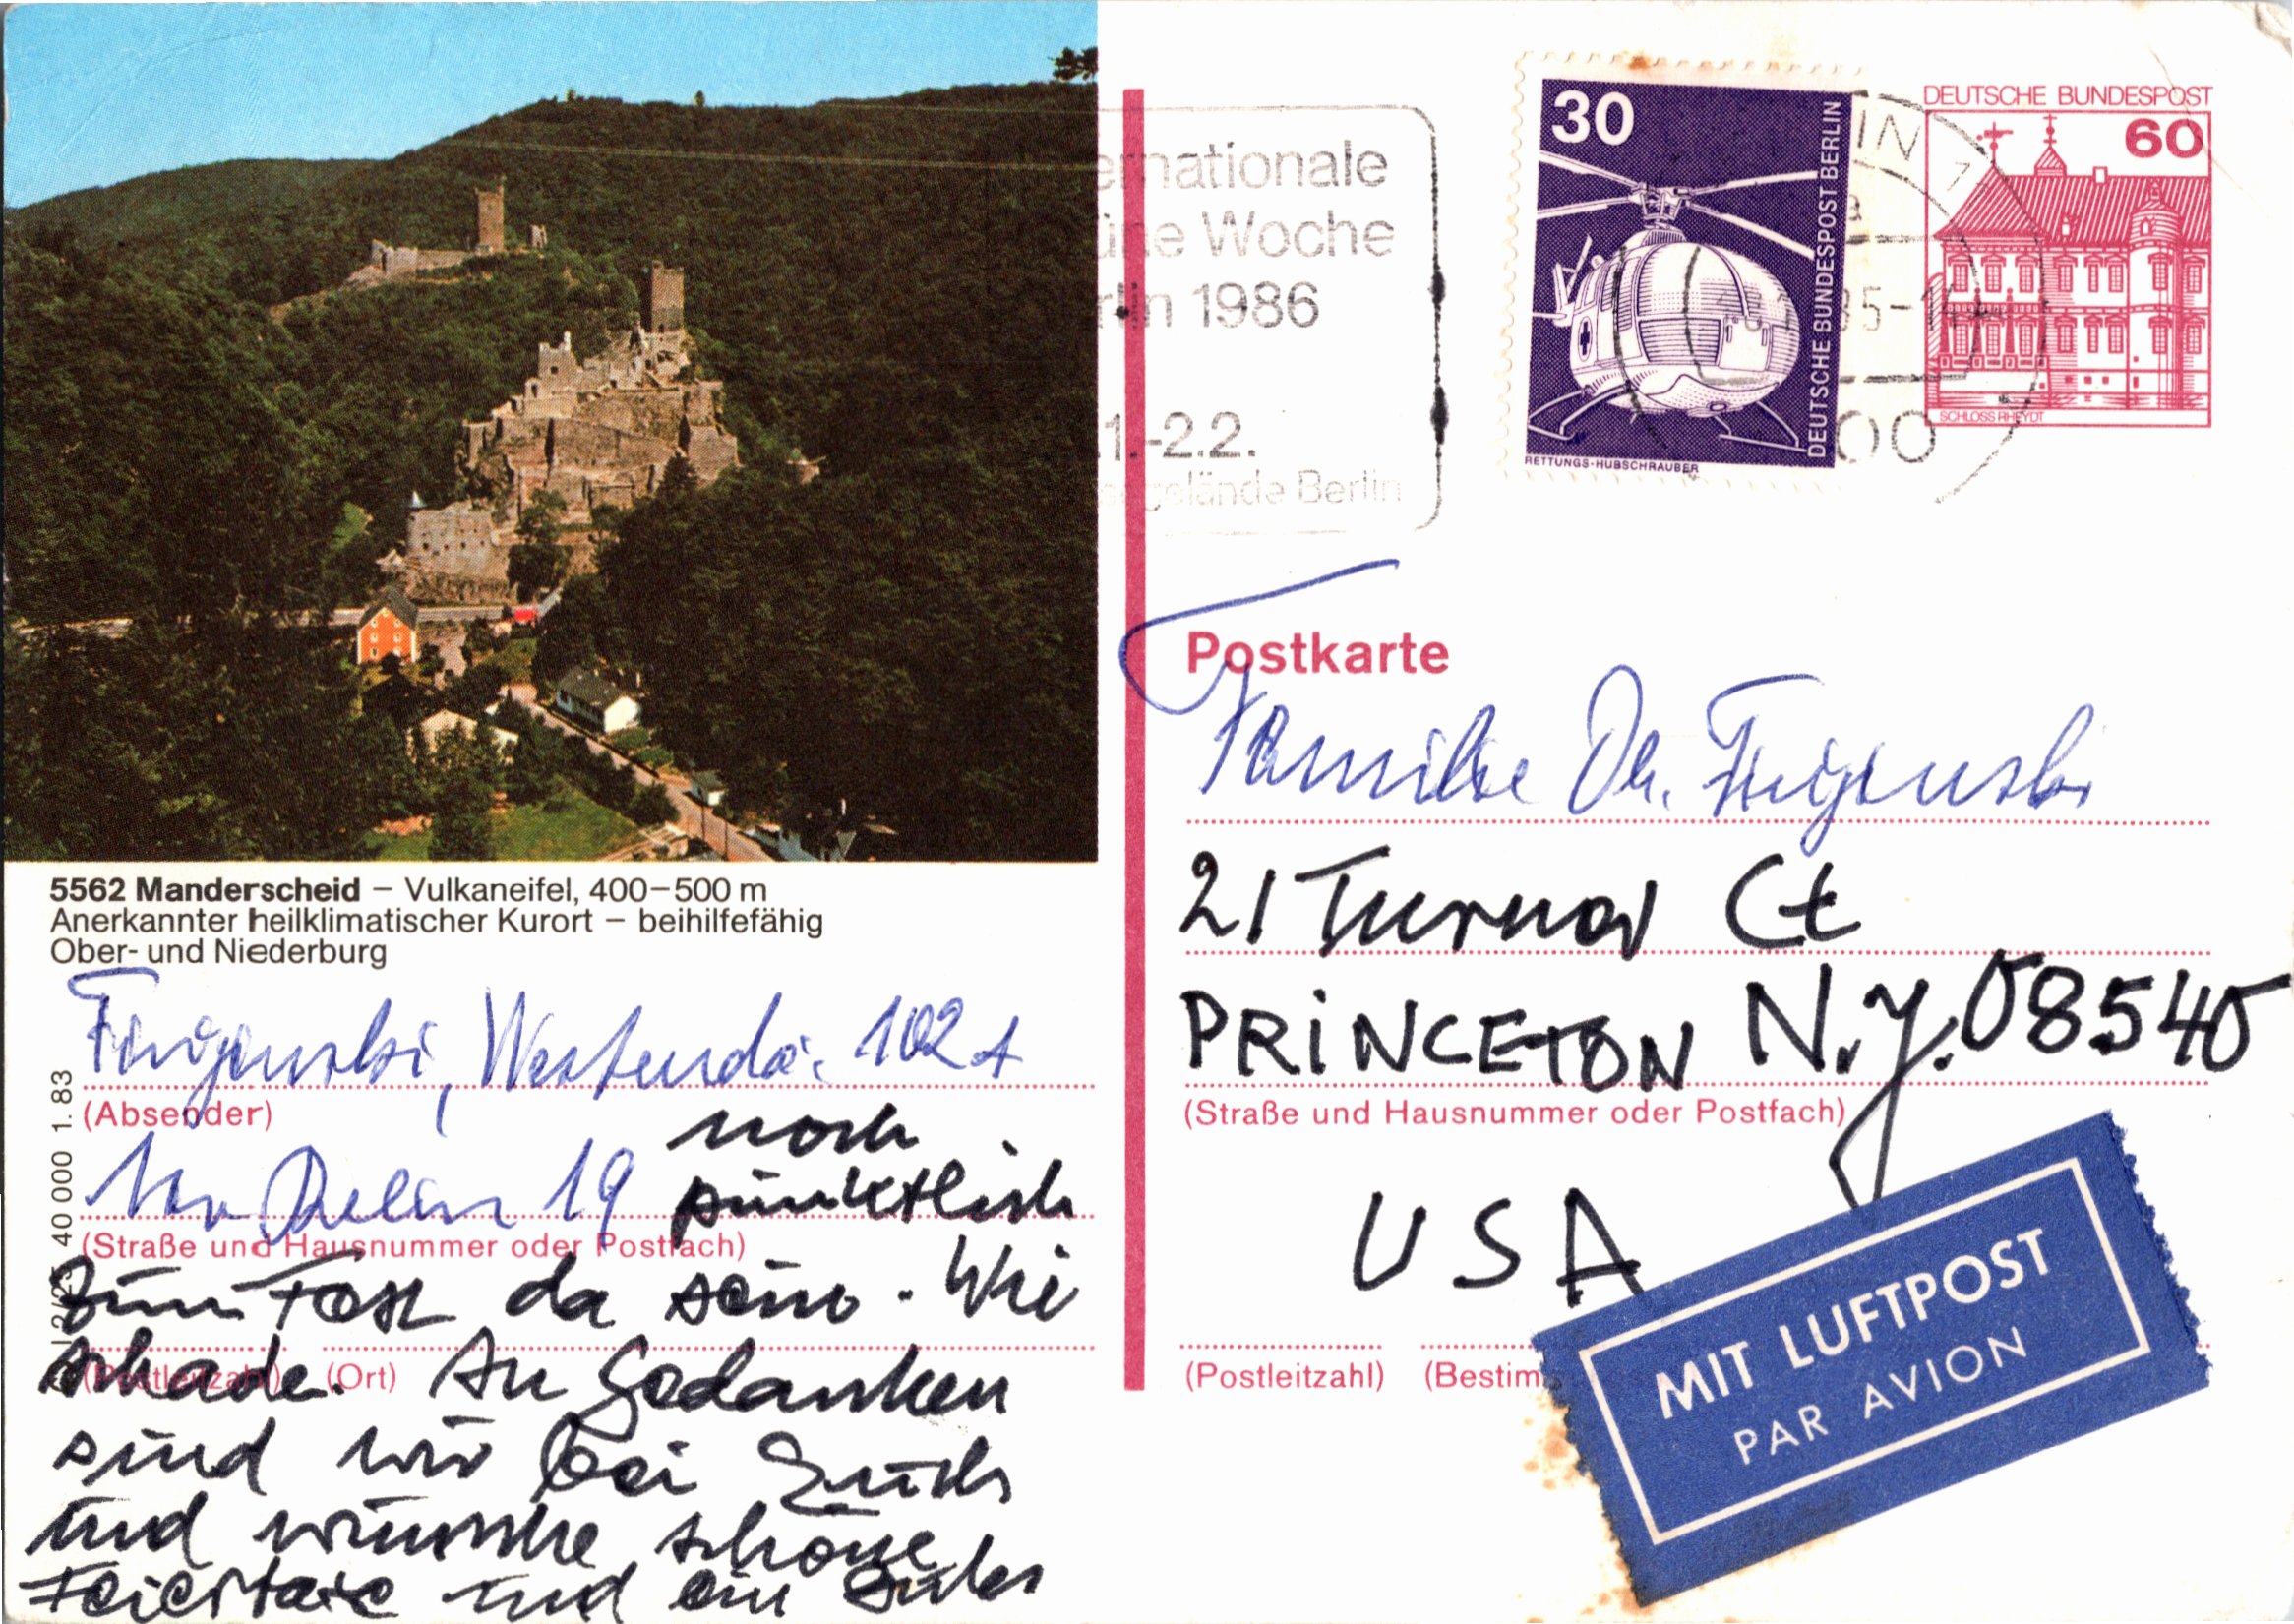 5562 Manderscheid – Vulkaneifel, 400–500 m
Anerkannter heilklimatischer Kurort – beihilfefähig
Ober- und Niederburg
102
(Absender)
19 noch
pünktlich
(Straße und Hausnummer oder Postfach)
zum Fest da sein. Wie
schade. In Gedanken
(Postleitzahl) (Ort)
sind wir bei Euch
und wünsche schöne
Feiertage und ein gutes
40 000 1. 83
ernationale
ne Woche
rlin 1986
1.-2.2.
gelände Berlin
30
DEUTSCHE BUNDESPOST BERLIN
RETTUNGS-HUBSCHRAUBER
DEUTSCHE BUNDESPOST
60
SCHLOSS RHEYDT
Postkarte
Familie Dr.
21 Turner Ct
PRINCETON N.J. 08540
(Straße und Hausnummer oder Postfach)
USA
(Postleitzahl) (Bestim
MIT LUFTPOST
PAR AVION